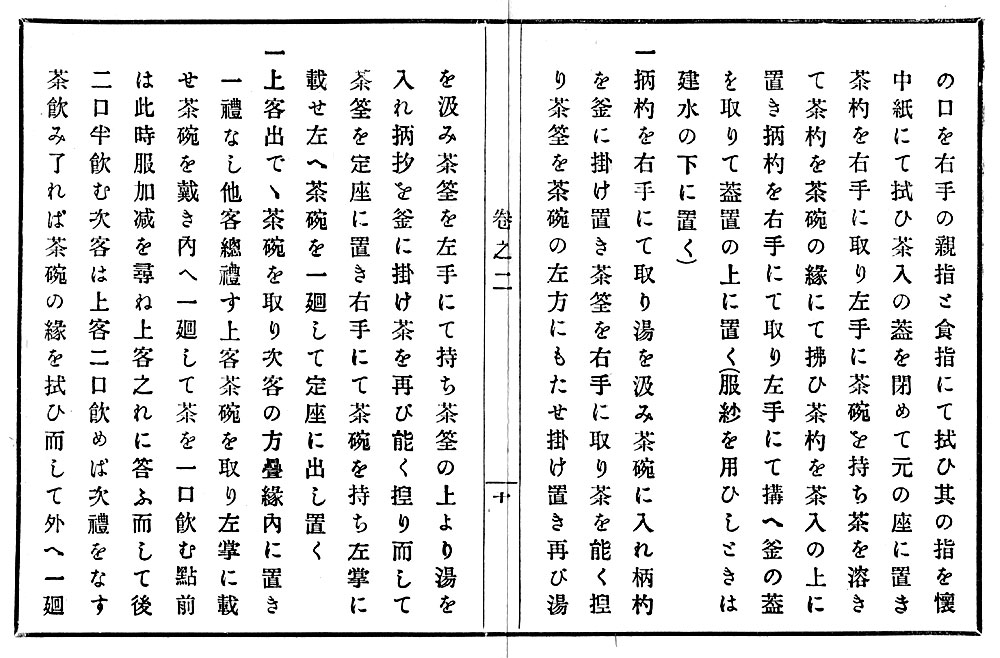 の口を右手の親指と食指にて拭ひ其の指を懷
中紙にて拭ひ茶入の蓋を閉めて元の座に置き
茶杓を右手に取り左手に茶碗を持ち茶を溶き
て茶杓を茶碗の緣にて拂ひ茶杓を茶入の上に
置き柄杓を右手にて取り左手にて搆へ釜の蓋
を取りて蓋置の上に置く(服紗を用ひしときは
建水の下に置く)
一柄杓を右手にて取り湯を汲み茶碗に入れ柄杓
を釜に掛け置き茶筌を右手に取り茶を能く揑
り茶筌を茶碗の左方にもたせ掛け置き再び湯
卷之二
十
を汲み茶筌を左手にて持ち茶筌の上より湯を
入れ柄抄を釜に掛け茶を再び能く揑り而して
茶筌を定座に置き右手にて茶碗を持ち左掌に
載せ左へ茶碗を一廻して定座に出し置く
一上客出でヽ茶碗を取り次客の方疊緣內に置き
一禮なし他客總禮す上客茶碗を取り左掌に載
せ茶碗を戴き內へ一廻して茶を一口飮む點前
は此時服加减を尋ね上客之れに答ふ而して後
二口半飮む次客は上客二口飮めば次禮をなす
茶飮み了れば茶碗の緣を拭ひ而して外へ一廻